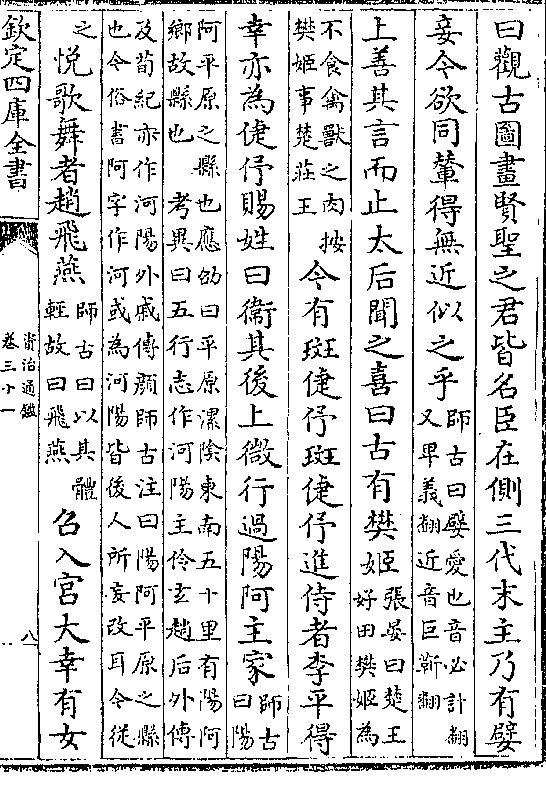 曰觀古圖畫賢聖之君皆名臣在側三代末主乃有嬖
妾今欲同輦得無近似之乎
師古曰嬖愛也音必計翻
又卑義翻近音巨靳翻
上善其言而止太后聞之喜曰古有樊姬
張晏曰楚王
好田樊姬為
不食禽獸之肉 按
樊姬事楚莊王
今有斑倢伃斑倢伃進侍者李平得
幸亦為倢伃賜姓曰衞其後上微行過陽阿主家
師古
曰陽
阿平原之縣也應劭曰平原漯陰東南五十里有陽阿
鄉故縣也 考異曰五行志作河陽主伶玄趙后外傳
及荀紀亦作河陽外戚傳顔師古注曰陽阿平原之縣
也今俗書阿字作河或為河陽皆後人所妄改耳今從
之
悅歌舞者趙飛燕
師古曰以其體
輕故曰飛燕
召入宮大幸有女
欽定四庫全書
資治通鑑
卷三十一
八